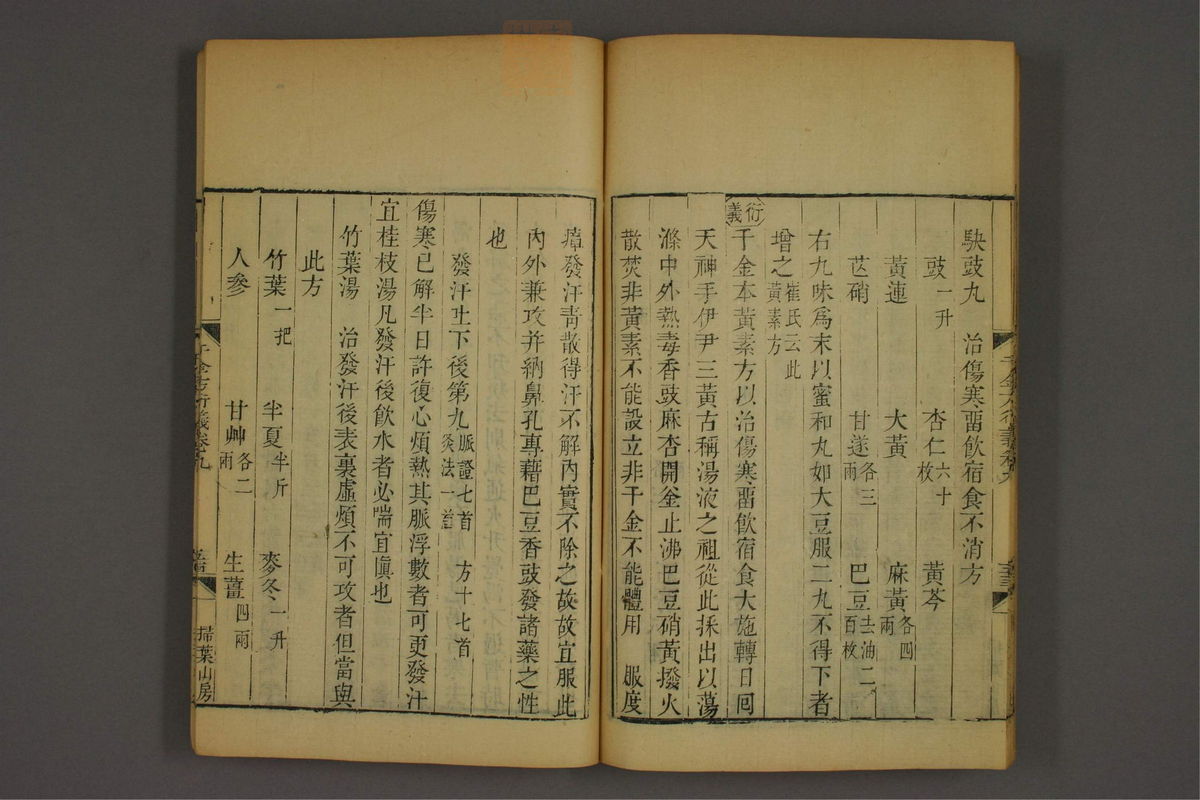 䜴豉丸　治傷寒畱飮宿食不消方
豉一升　杏仁六十枚　黃芩
黃連　大黃　麻黃各四兩
芒硝　甘遂各三兩　巴豆去油二百枚
右九味爲末以蜜和丸如大豆服二丸不得下者
增之崔氏云此黃素方
衍義
千金本黃素方以治傷寒畱飮宿食大施轉日回
天神手伊尹三黃古稱湯液之祖從此採出以蕩
滌中外熱毒香豉麻杏開釜止沸巴豆硝黃撥火
散焚非黃素不能設立非千金不能體用　服度
瘴發汗靑散得汗不解內實不除之故故宜服此
內外兼攻并納鼻孔專藉巴豆香豉發諸藥之性
也
發汗吐下後第九脈證七首　方十七首灸法一首
傷寒已解半日許復心煩熱其脈浮數者可更發汗
宜桂枝湯凡發汗後飮水者必喘宜愼也
竹葉湯　治發汗後表裏虛煩不可攻者但當與
此方
竹葉一把　半夏半斤　麥冬一升
人參　甘艸各二兩　生薑四兩
千金方衍義卷九
掃葉山房